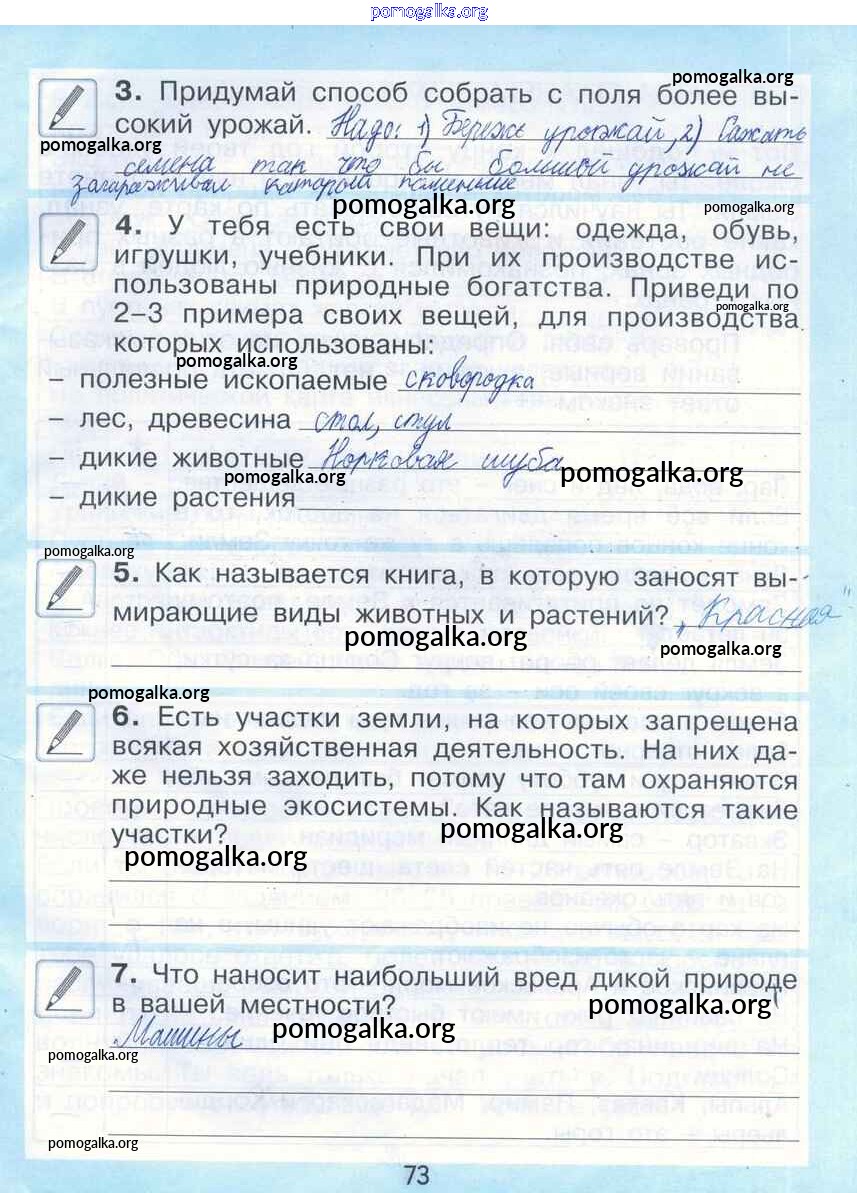 pomogalka.org
pomogalka.org
3. Придумай способ собрать с поля более вы-
сокий урожай. Надо: 1) Береж урожай, 2) Сажать
pomogalka.org
семена так что бы большой урожай не
загараживал который паменьше
pomogalka.org
pomogalka.org
4. У тебя есть свои вещи: одежда, обувь,
игрушки, учебники. При их производстве ис-
пользованы природные богатства. Приведи по
pomogalka.org
2–3 примера своих вещей, для производства
которых использованы:
pomogalka.org
– полезные ископаемые сковородка
– лес, древесина стол, стул
– дикие животные Норковая шуба
pomogalka.org
pomogalka.org
– дикие растения
pomogalka.org
5. Как называется книга, в которую заносят вы-
мирающие виды животных и растений? „Красная"
pomogalka.org
pomogalka.org
pomogalka.org
6. Есть участки земли, на которых запрещена
всякая хозяйственная деятельность. На них да-
же нельзя заходить, потому что там охраняются
природные экосистемы. Как называются такие
участки?
pomogalka.org
pomogalka.org
7. Что наносит наибольший вред дикой природе
в вашей местности?
pomogalka.org
Машины
pomogalka.org
pomogalka.org
pomogalka.org
73